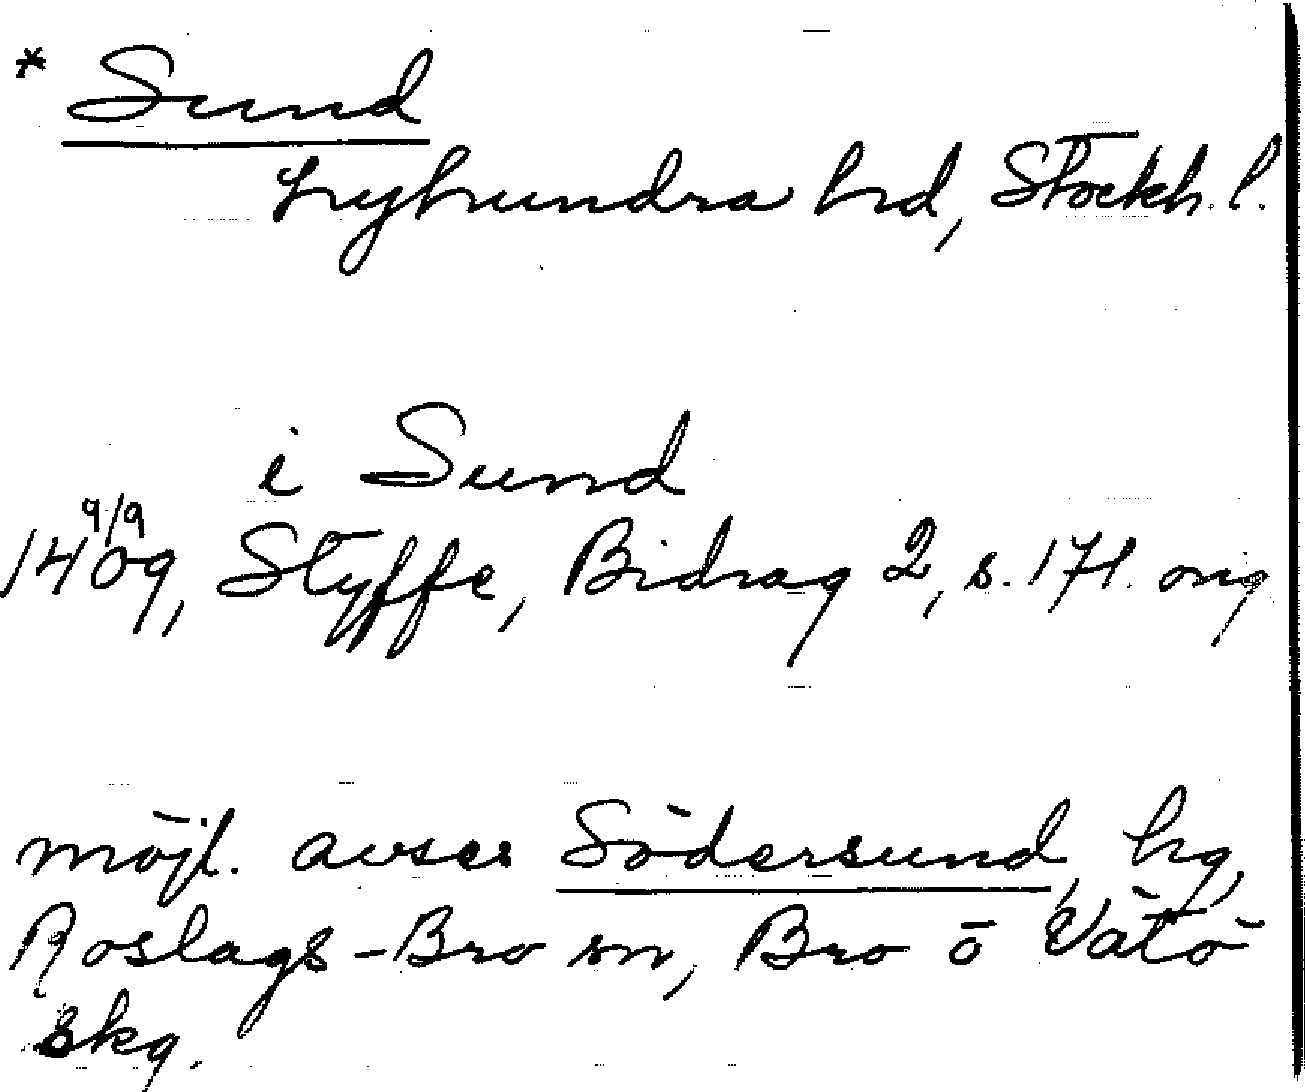 * Sund
Lyhundra hd, Stockh. l.
i Sund
9/9
1409, Styffe, Bidrag 2, s. 171. orig
möjl. avses Södersund, hg,
Roslags-Bro sn, Bro o Vätö
skg.